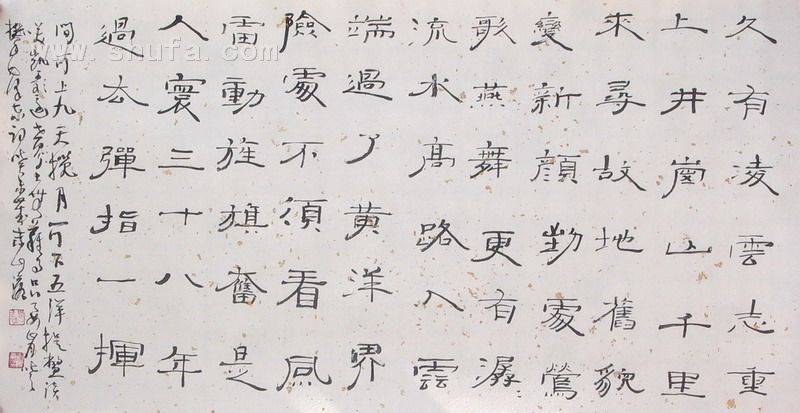 www.shufa.com
久有凌雲志重
上井崗山千里
來尋故地舊貌
變新顏到處鶯
歌燕舞更有潺
流水高路入雲
端過了黃洋界
險處不須看風
雷動旌旗奮是
人寰三十八年
過去彈指一揮
間可上九天攬月可下五洋捉鱉談
笑凱歌還世上無難事只要肯登
攀毛澤東詞